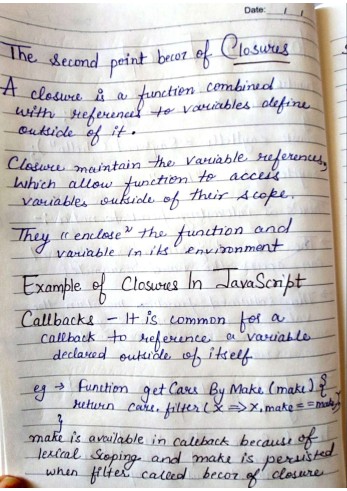 Date: / /
The second point becoz of Closures
A closure is a function combined
with references to variables define
outside of it.
Closure maintain the variable references,
which allow function to access
variables outside of their scope.
They "enclose" the function and
variable in its environment
Example of Closures In JavaScript
Callbacks - It is common for a
callback to reference a variable
declared outside of itself
eg → Function get Cars By Make (make) {
return cars. filter (x => x. make == make)
}
make is available in callback because of
lexical Scoping and make is persisted
when filter called becoz of closure